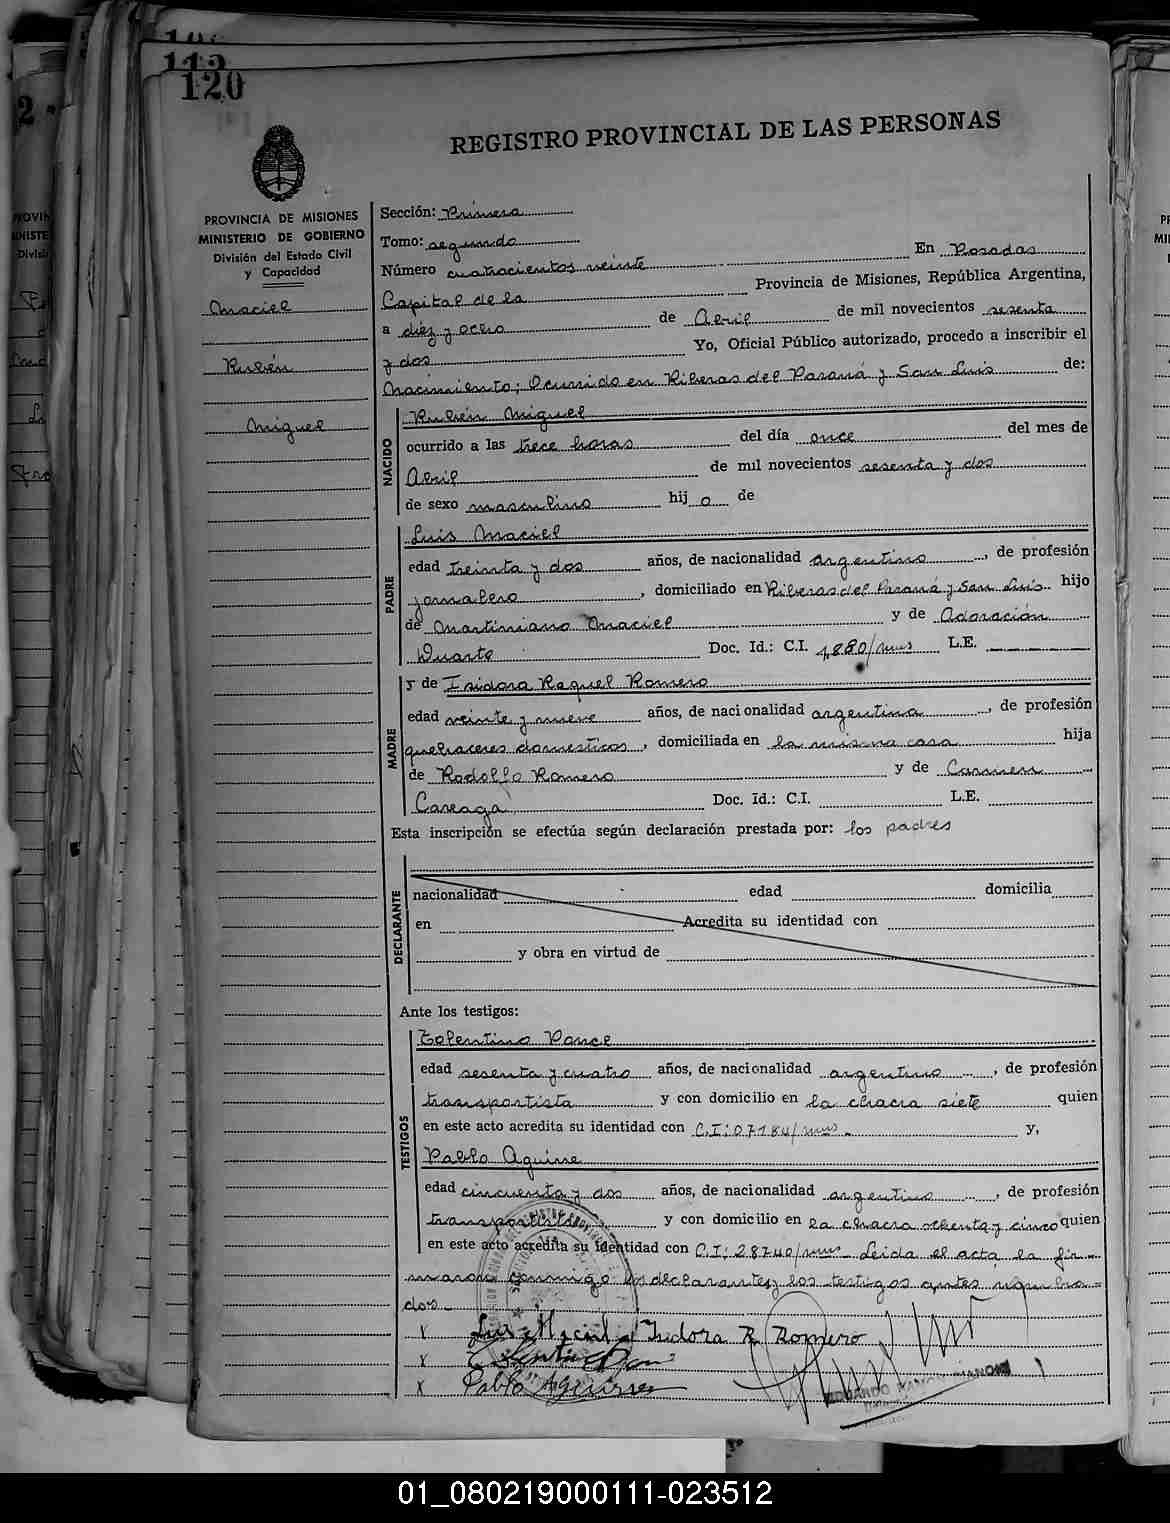 113
120
REGISTRO PROVINCIAL DE LAS PERSONAS
PROVINCIA DE MISIONES
MINISTERIO DE GOBIERNO
División del Estado Civil
y Capacidad
Maciel
Rubén
Miguel
Sección: Primera
Tomo: segundo
Número cuatrocientos veinte En Posadas
Capital de la Provincia de Misiones, República Argentina,
a diez y ocho de Abril de mil novecientos sesenta
y dos Yo, Oficial Público autorizado, procedo a inscribir el
Nacimiento; Ocurrido en Riberas del Paraná y San Luis de:
NACIDO
Rubén Miguel
ocurrido a las trece horas del día once del mes de
Abril de mil novecientos sesenta y dos
de sexo masculino hijo de
PADRE
Luis Maciel
edad treinta y dos años, de nacionalidad argentino, de profesión
jornalero, domiciliado en Riberas del Paraná y San Luis hijo
de Martiniano Maciel y de Adoración
Duarte Doc. Id.: C.I. 1,880/mns L.E.
MADRE
y de Isidora Raquel Romero
edad veinte y nueve años, de nacionalidad argentina, de profesión
quehaceres domesticos, domiciliada en la misma casa hija
de Rodolfo Romero y de Carmen
Careaga Doc. Id.: C.I. L.E.
Esta inscripción se efectúa según declaración prestada por: los padres
DECLARANTE
nacionalidad edad domicilia
en Acredita su identidad con
y obra en virtud de
Ante los testigos:
TESTIGOS
Tolentino Ponce
edad sesenta y cuatro años, de nacionalidad argentino, de profesión
transportista y con domicilio en la chacra siete quien
en este acto acredita su identidad con C.I: 07184/mns y,
Pablo Aguirre
edad cincuenta y dos años, de nacionalidad argentino, de profesión
transportista y con domicilio en la chacra ochenta y cinco quien
en este acto acredita su identidad con C.I: 28740/mns Leida el acta, la fir-
maron conmigo los declarantes y los testigos antes nombra-
dos
x Luis Maciel x Isidora R. Romero
x
x Pablo Aguirre
01_080219000111-023512